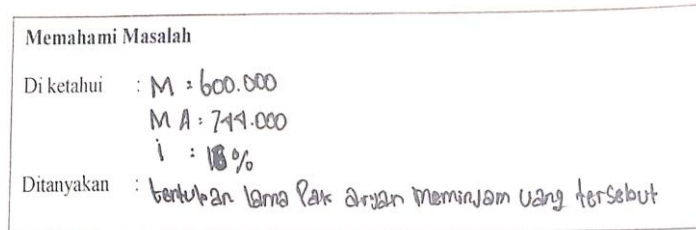 Memahami Masalah
Di ketahui : M = 600.000
MA : 744.000
i : 16 %
Ditanyakan : tentukan lama Pak aryan meminjam uang tersebut